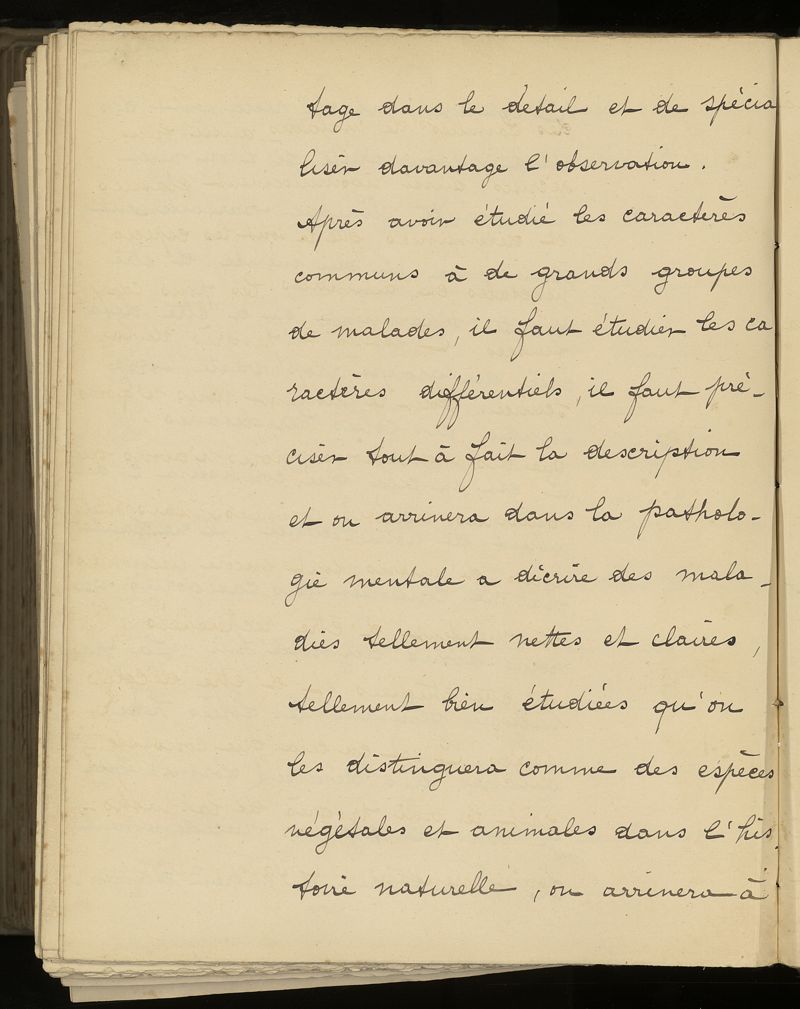 tage dans le détail et de spécia
liser davantage l'observation.
Après avoir étudié les caractères
communs à de grands groupes
de malades, il faut étudier les ca
ractères différentiels, il faut pré-
ciser tout à fait la description
et on arrivera dans la patholo-
gie mentale a décrire des mala-
dies tellement nettes et claires,
tellement bien étudiées qu'on
les distinguera comme des espèces
végétales et animales dans l'his-
toire naturelle, on arrivera à